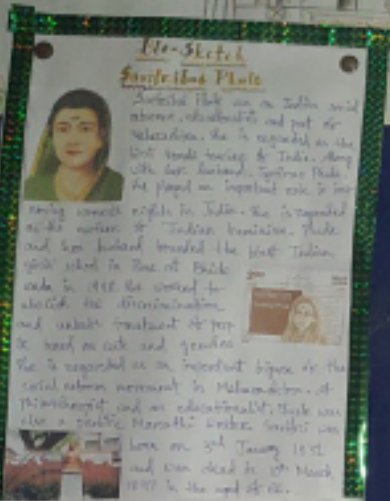 Bio-Sketch
Savitribai Phule
Savitribai Phule was an Indian social
reformer, educationalist and poet
Maharashtra. She is regarded as the
first female teacher of India. Along
with her husband, Jyotirao Phule
she played an important role in im-
roving women's rights in India. She is regarded
as the mother of Indian Feminism. Phule
and her husband founded the first Indian
girls school in Pune at Bhide
wada in 1948. She worked to
abolish the discrimination
and unfair treatment of peop
le based on caste and gender.
She is regarded as an important figure of the
social reform movement in Maharashtra. A
philanthropist and an educationalist, Phule was
also a prolific Marathi writer. Savitri was
born on 3rd January 1831
and was died in 10th March
1897 in the aged of 66.